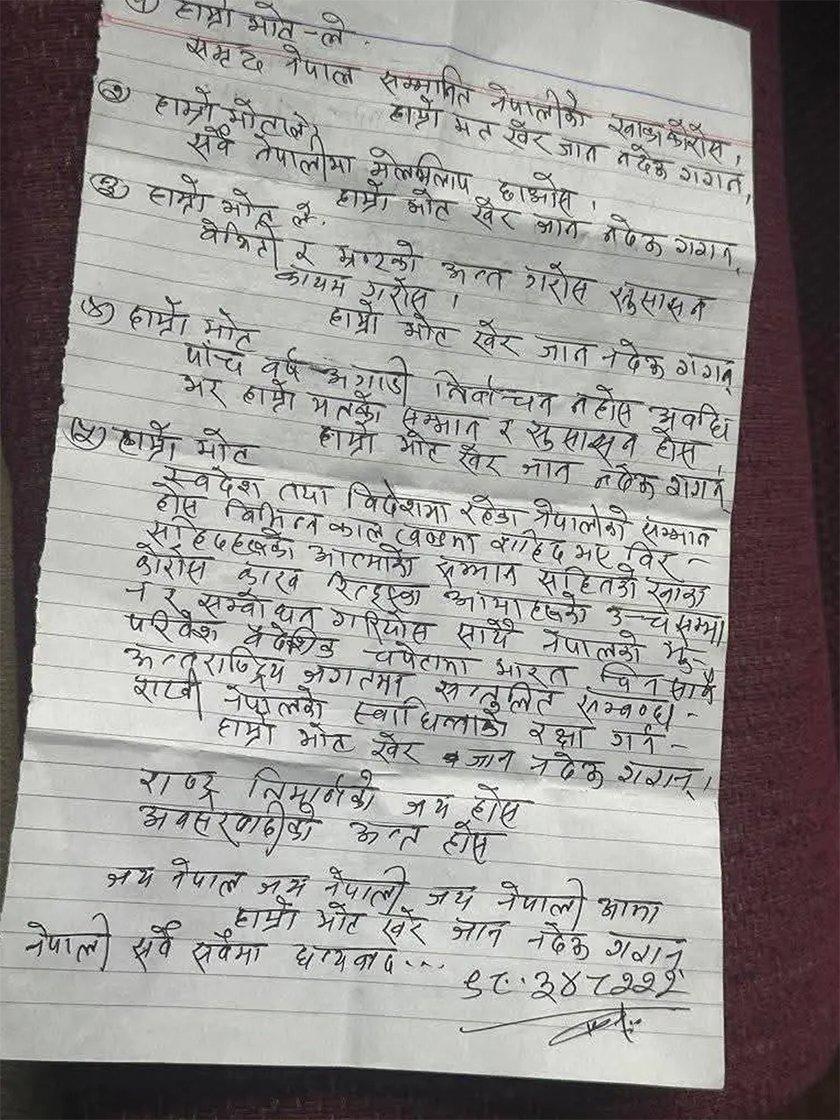 १) हाम्रो भोट-ले.
समृद्ध नेपाल सम्मानित नेपालीको रक्षा गरोस,
हाम्रो मत खेर जान नदेऊ गगन,
२) हाम्रो भोटले,
सबै नेपालीमा मेलमिलाप छाओस,
हाम्रो भोट खेर जान नदेऊ गगन,
३) हाम्रो भोट ले.
बेथिती र भ्रष्टको अन्त गरोस सुसासन
कायम गरोस ।
हाम्रो भोट खेर जान नदेऊ गगन्
४) हाम्रो भोट
पाँच वर्ष अगाडी निर्वाचन नहोस अवधि
भर हाम्रो मतको सम्मान र सुसासन होस,
हाम्रो भोट खेर जान नदेऊ गगन्
५) हाम्रो भोट
स्वदेश तथा विदेशमा रहेका नेपालीको सम्मान
होस विभिन्न काल खण्डमा शहिद भए विर-
सहिदहरुको आत्माको सम्मान सहितको
आमाहरुको उच्च सम्मा
न र सम्बोधन गरियोस साथै नेपालको भू-
परिवेश बैदेशिक चपेटामा भारत चिन साथै
अन्तराष्ट्रिय जगतमा सन्तुलित सम्बन्ध-
राखी नेपालको स्वाधिनताको रक्षा गर्न-
हाम्रो भोट खेर जान नदेऊ गगन्।
राष्ट्र निमार्णको जय होस
अवसरवादीको अन्त होस
जय नेपाल जय नेपाली जय नेपाली आमा
हाम्रो भोट खेर जान नदेऊ गगन्
नेपाली सबै सबैमा धन्यवाद...